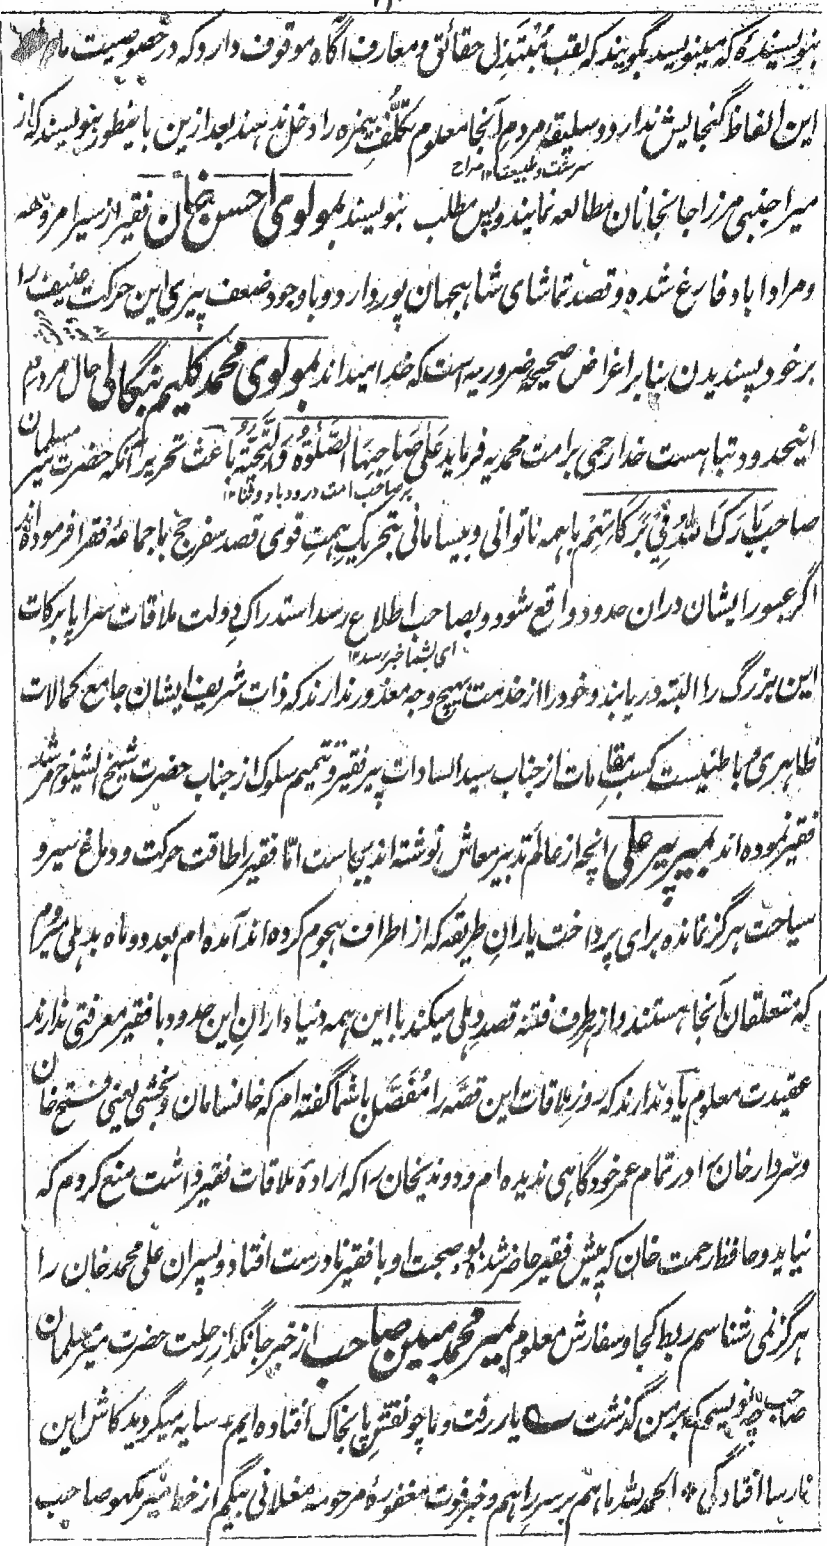 بنویسنده که مینویسد بگویند که لقب مُبْتَذِلِ حقائق و معارف آگاه موقوف دارد که در خصوصیت ما
این الفاظ گنجایش ندارد و سلیقهٔ مردمِ آنجا معلوم تکلُّفِ بیمزه را دخل ندهند بعد ازین باینطور بنویسند که از
سرشت و طبیعت ۱۲ صراح
میرا جنبی مرزا جانجانان مطالعه نمایند و پس مطلب بنویسند بمولوی احسن خان فقیر از سیر امروهه
و مراداباد فارغ شده و قصد تماشای شاهجهان پور دارد و با وجود ضعف پیری این حرکت عنیف را
بر خود پسندیدن بنا بر اغراض صحیحهٔ ضروریه است که خدا میداند بمولوی محمد کلیم بنگالی حال مردمِ
اینحدود تباه است خدا رحمی بر امت محمدیه فرماید عَلیٰ صَاحِبِهَا الصَّلوٰةُ وَالتَّحِیَّة باعث تحریر آنکه حضرت میر مسلمان
بر صاحب امت درود باد و ثنا ۱۲
صاحب بَارَکَ اللّٰهُ فِیْ بَرَکَاتِهِمْ با همه ناتوانی و بیسامانی بتحریکِ همتِ قوی قصد سفرِ حج با جماعهٔ فقرا فرموده‌اند
اگر عبور ایشان دران حدود واقع شود و بصاحب اطلاع رسد استدراکِ دولت ملاقات سراپا برکات
ای بشما خبر رسد ۱۲
این بزرگ را البته دریابند و خود را از خدمت بهیچ وجه معذور ندارند که ذات شریف ایشان جامع کمالات
ظاهری و باطنیست کسب مقامات از جناب سید السادات پیر فقیر و تتمیم سلوک از جناب حضرت شیخ الشیوخ مرشد
فقیر نموده اند بمیر پیر علی انچه از عالم تدبیر معاش نوشته اند بجاست امّا فقیر را طاقت حرکت و دماغ سیر و
سیاحت هرگز نمانده برای پرداخت یارانِ طریقه که از اطراف هجوم کرده اند آمده ام بعد دو ماه بدهلی میروم
که متعلقان آنجا هستند و از هر طرف فتنه قصدِ دهلی میکند با این همه دنیا دارانِ این حدود با فقیر معرفتی ندارند
عقیدت معلوم یاد ندارند که روز ملاقات این قصّه را مُفَصَّل با شما گفته ام که خانسامان و بخشی یعنی فتح خان
و سردار خان را در تمام عمر خود گاهی ندیده ام و دوندیخان را که ارادهٔ ملاقات فقیر داشت منع کردم که
نیاید و حافظ رحمت خان که پیش فقیر حاضر شده بود صحبت او با فقیر نا درست افتاد و پسران علی محمد خان را
هرگز نمی شناسم ربط کجا و سفارش معلوم بمیر محمد مبین صاحب از خبر جانگداز رحلت حضرت میر مسلمان
صاحب چه نویسم که بر من گذشت یار رفت و ما چو نقشِ پا بخاک افتاده ایم سایه میگردید کاش این
نارسا افتادگی * الحمد لله ما هم بر سر راهیم و خبر فوت مغفورهٔ مرحومه مغلانی بیگم از خط میر مکهو صاحب